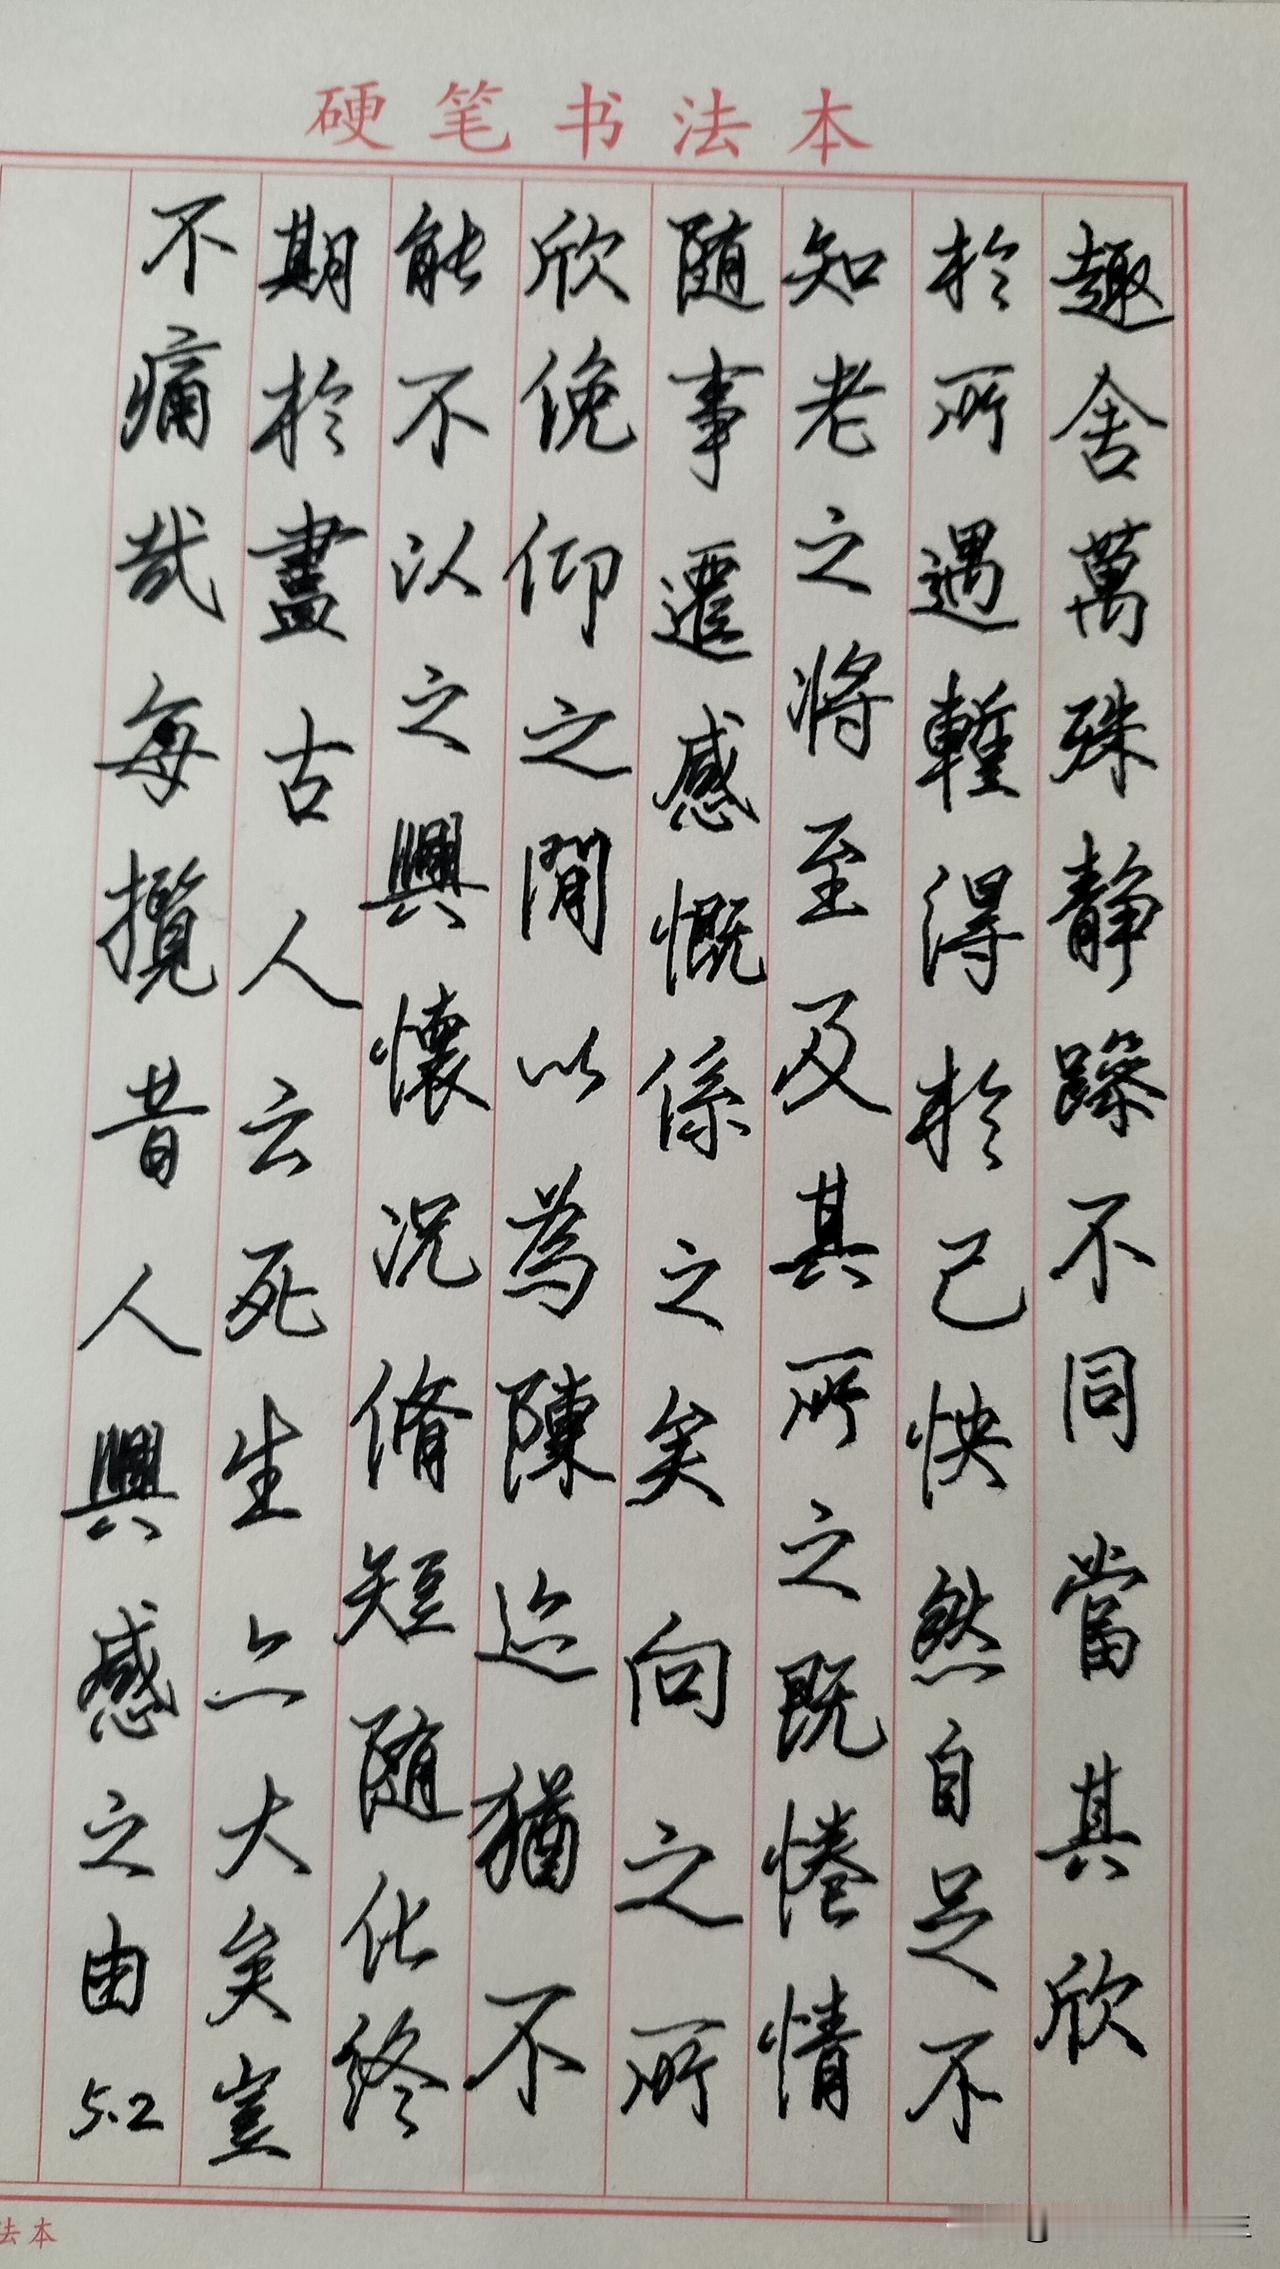 硬笔书法本
趣舍萬殊静躁不同當其欣
於所遇暫得於己怏然自足不
知老之将至及其所之既惓情
随事遷感慨係之矣向之所
欣俛仰之閒以為陳迹猶不
能不以之興懷况脩短随化終
期於盡古人云死生亦大矣豈
不痛哉每攬昔人興感之由
5.2
法本